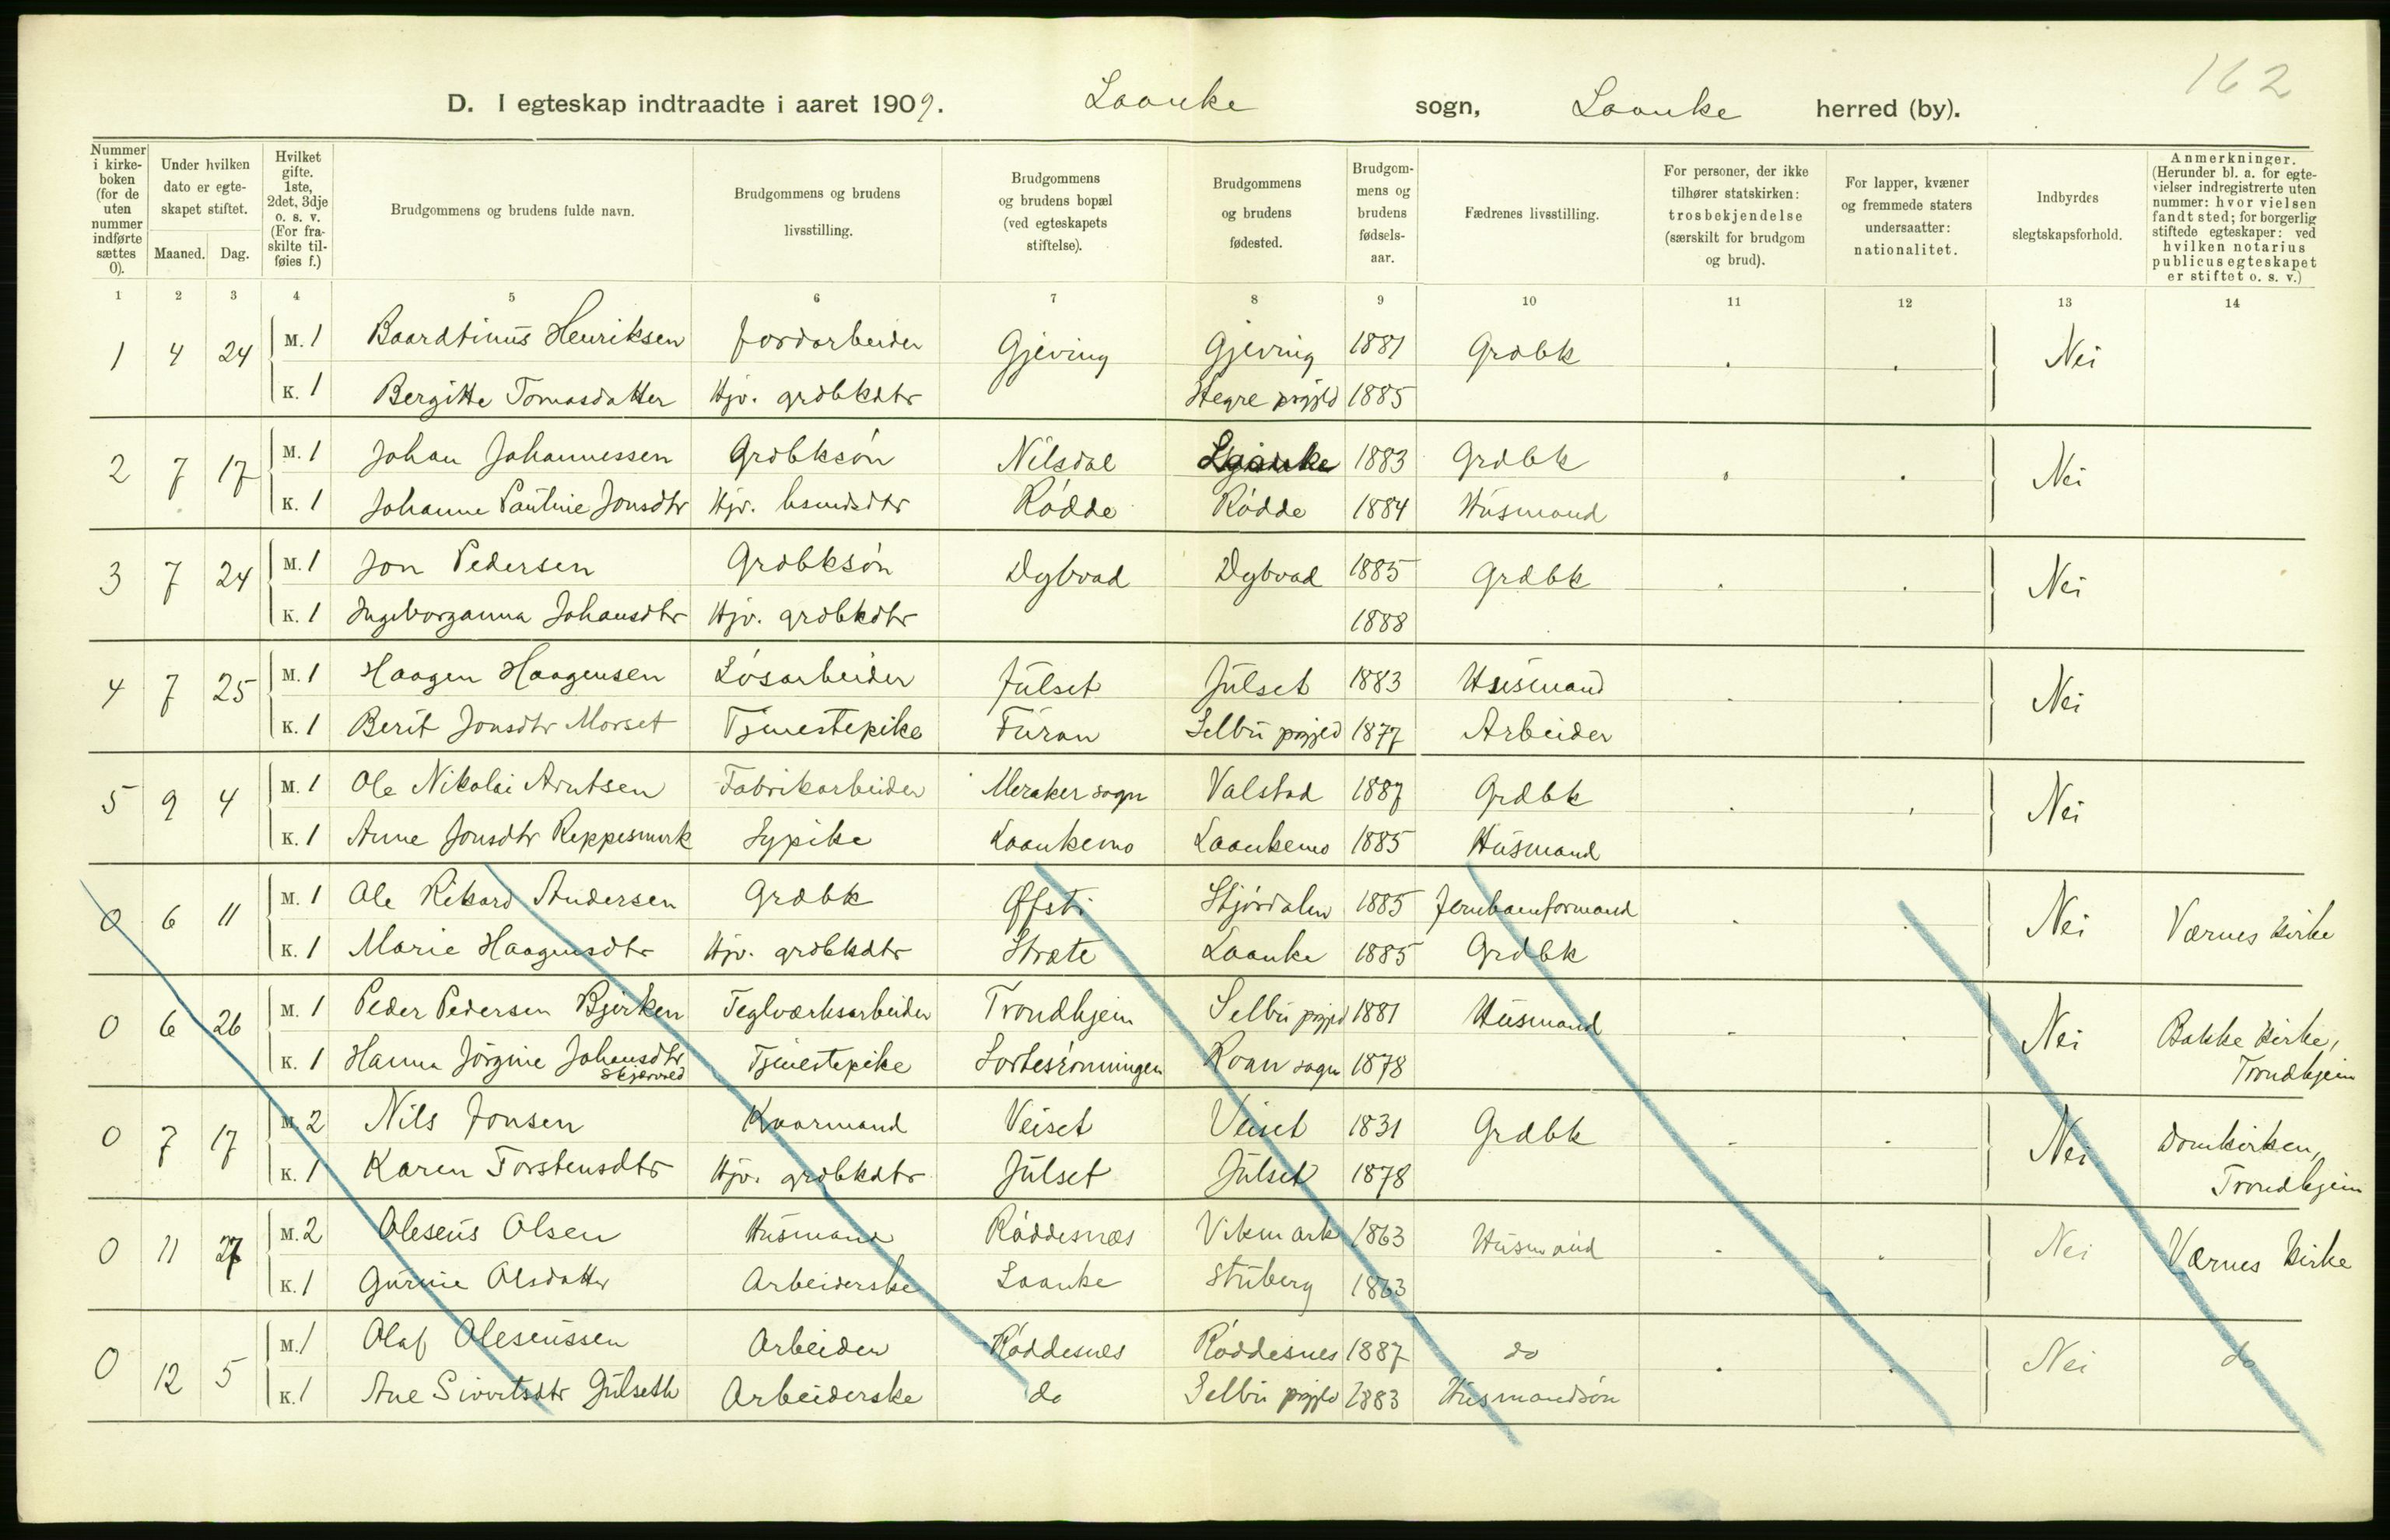 162
D. I egteskap indtraadte i aaret 1909. Laanke sogn, Laanke herred (by).
Nummer i kirke-boken (for de uten nummer indførte sættes 0).
Under hvilken dato er egte-skapet stiftet.
Maaned. Dag.
Hvilket gifte. 1ste, 2det, 3dje o. s. v. (For fra-skilte til-føies f.)
Brudgommens og brudens fulde navn.
Brudgommens og brudens livsstilling.
Brudgommens og brudens bopæl (ved egteskapets stiftelse).
Brudgommens og brudens fødested.
Brudgom-mens og brudens fødsels-aar.
Fædrenes livsstilling.
For personer, der ikke tilhører statskirken: trosbekjendelse (særskilt for brudgom og brud).
For lapper, kvæner og fremmede staters undersaatter: nationalitet.
Indbyrdes slegtskapsforhold.
Anmerkninger. (Herunder bl. a. for egte-vielser indregistrerte uten nummer: hvor vielsen fandt sted; for borgerlig stiftede egteskaper: ved hvilken notarius publicus egteskapet er stiftet o. s. v.)
1 2 3 4 5 6 7 8 9 10 11 12 13 14
1 4 24 M. 1 Baardtinus Henriksen Jordarbeider Gjeving Gjeving 1881 Grdbk Nei
K. 1 Bergitte Tomasdatter Hjv. grdbkdtr Hegre prgjld 1885
2 7 17 M. 1 Johan Johannessen Grdbksøn Nilsdal Laanke 1883 Grdbk Nei
K. 1 Johanne Pauline Jonsdtr Hjv. hsmdsdtr Rødde Rødde 1884 Husmand
3 7 24 M. 1 Jon Pedersen Grdbksøn Dybvad Dybvad 1885 Grdbk Nei
K. 1 Ingeborganna Johansdtr Hjv. grdbkdtr 1888
4 7 25 M. 1 Haagen Haagensen Løsarbeider Julset Julset 1883 Husmand Nei
K. 1 Berit Jonsdtr Morset Tjenestepike Furan Selbu prgjld 1877 Arbeider
5 9 4 M. 1 Ole Nikolai Arntsen Fabrikarbeider Meraker sogn Valstad 1887 Grdbk Nei
K. 1 Anne Jonsdtr Reppesmark Sypike Laankemo Laankemo 1885 Husmand
0 6 11 M. 1 Ole Rikard Andersen Grdbk Øfsti Stjørdalen 1885 Jernbaneformand Nei Værnes kirke
K. 1 Marie Haagensdtr Hjv. grdbkdtr Stræte Laanke 1885 Grdbk
0 6 26 M. 1 Peder Pedersen Bjerken Teglværksarbeider Trondhjem Selbu prgjld 1881 Husmand Nei Bakke kirke,
K. 1 Hanna Jørgine Johansdtr Tjenestepike Sortesrønningen Roan sogn 1878 Trondhjem
Skjærved
0 7 17 M. 2 Nils Jonsen Kaarmand Veiset Veiset 1831 Grdbk Nei Domkirken,
K. 1 Karen Torstensdtr Hjv. grdbkdtr Julset Julset 1878 Trondhjem
0 11 27 M. 2 Oleseus Olsen Husmand Røddesnæs Vikmark 1863 Husmand Nei Værnes kirke
K. 1 Gurine Olsdatter Arbeiderske Laanke Stuberg 1863
0 12 5 M. 1 Olaf Oleseussen Arbeider Røddesnes Røddesnes 1887 do Nei do
K. 1 Ane Sivertsdtr Gulseth Arbeiderske do Selbu prgjld 1883 Husmandsøn